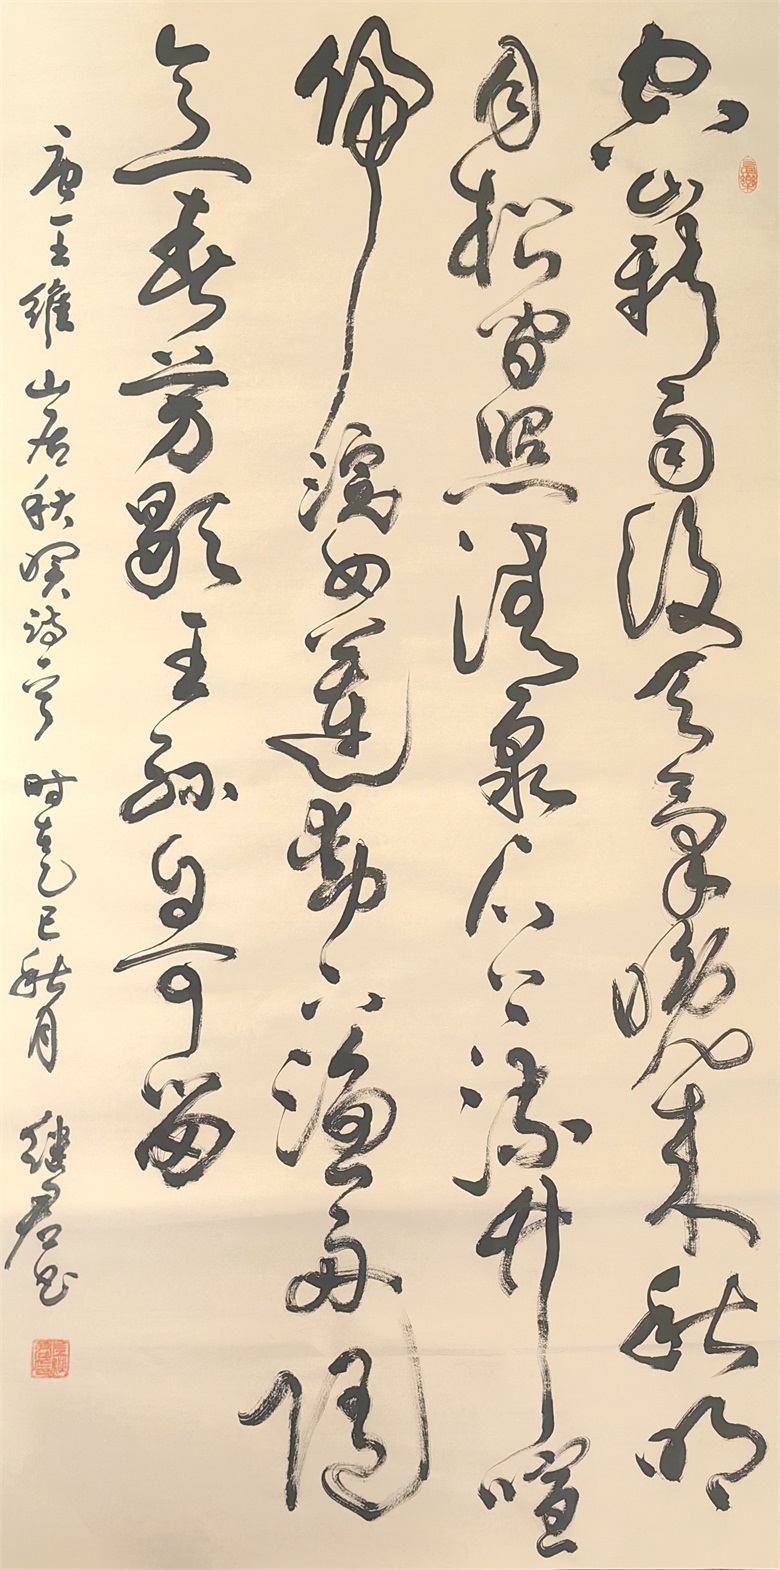 空山新雨後天氣晚来秋明
月松間照清泉石上流竹喧
歸浣女蓮動下漁舟随
意春芳歇王孫自可留
唐王維山居秋暝诗一首 时在乙巳秋月 继君书